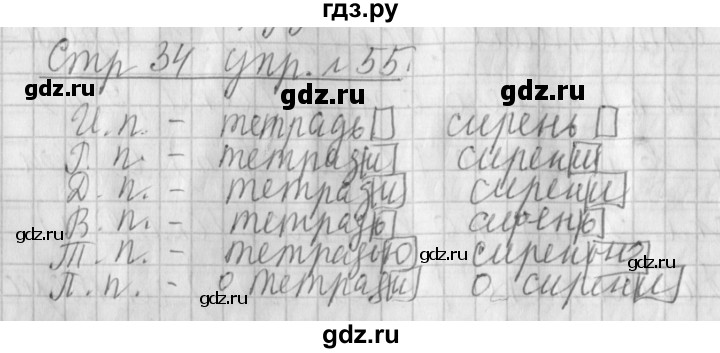 гдз.ру
Стр 34 упр. № 55.
gdz.ru gdz.ru gdz.ru
И. п. - тетрадь сирень
Р. п. - тетради сирени
Д. п. - тетради сирени
В. п. - тетрадь сирень
gdz.ru
Т. п. - тетрадью сиренью
gdz.ru gdz.ru
П. п. - о тетради о сирени
gdz.ru
gdz.ru